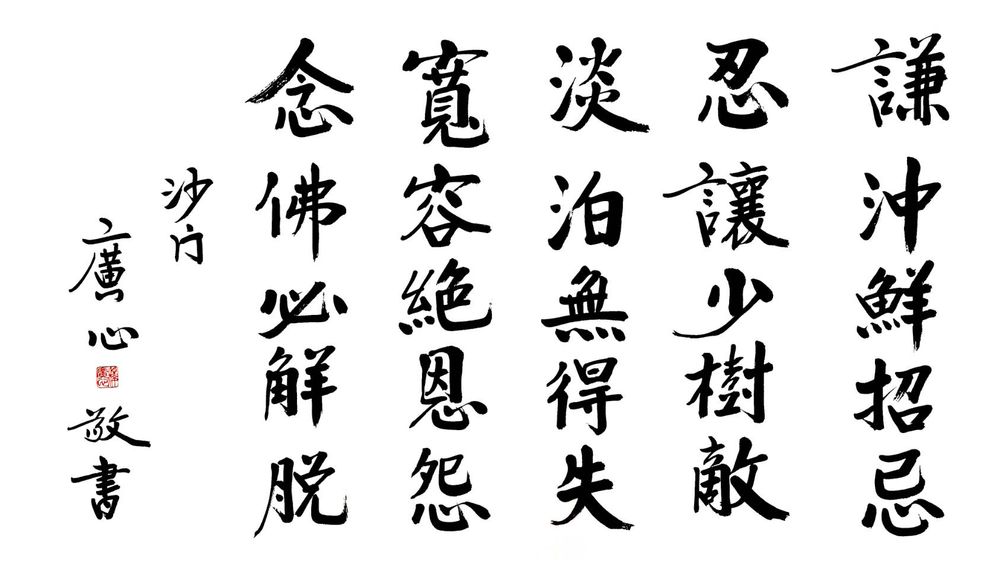 謙沖鮮招忌
忍讓少樹敵
淡泊無得失
寬容絕恩怨
念佛必解脫
沙门
廣心敬書